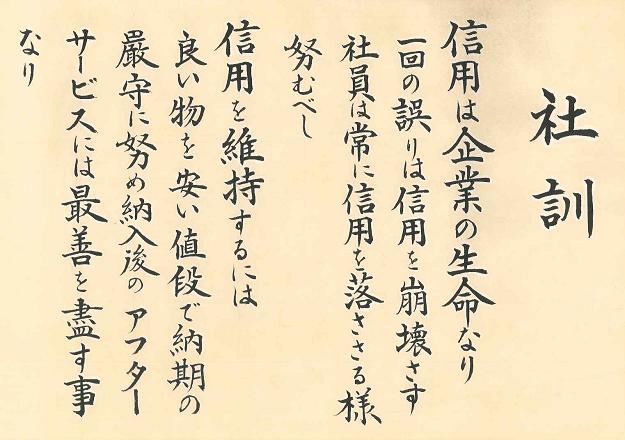 社訓
信用は企業の生命なり
一回の誤りは信用を崩壊さす
社員は常に信用を落さざる様
努むべし
信用を維持するには
良い物を安い値段で納期の
嚴守に努め納入後のアフター
サービスには最善を盡す事
なり